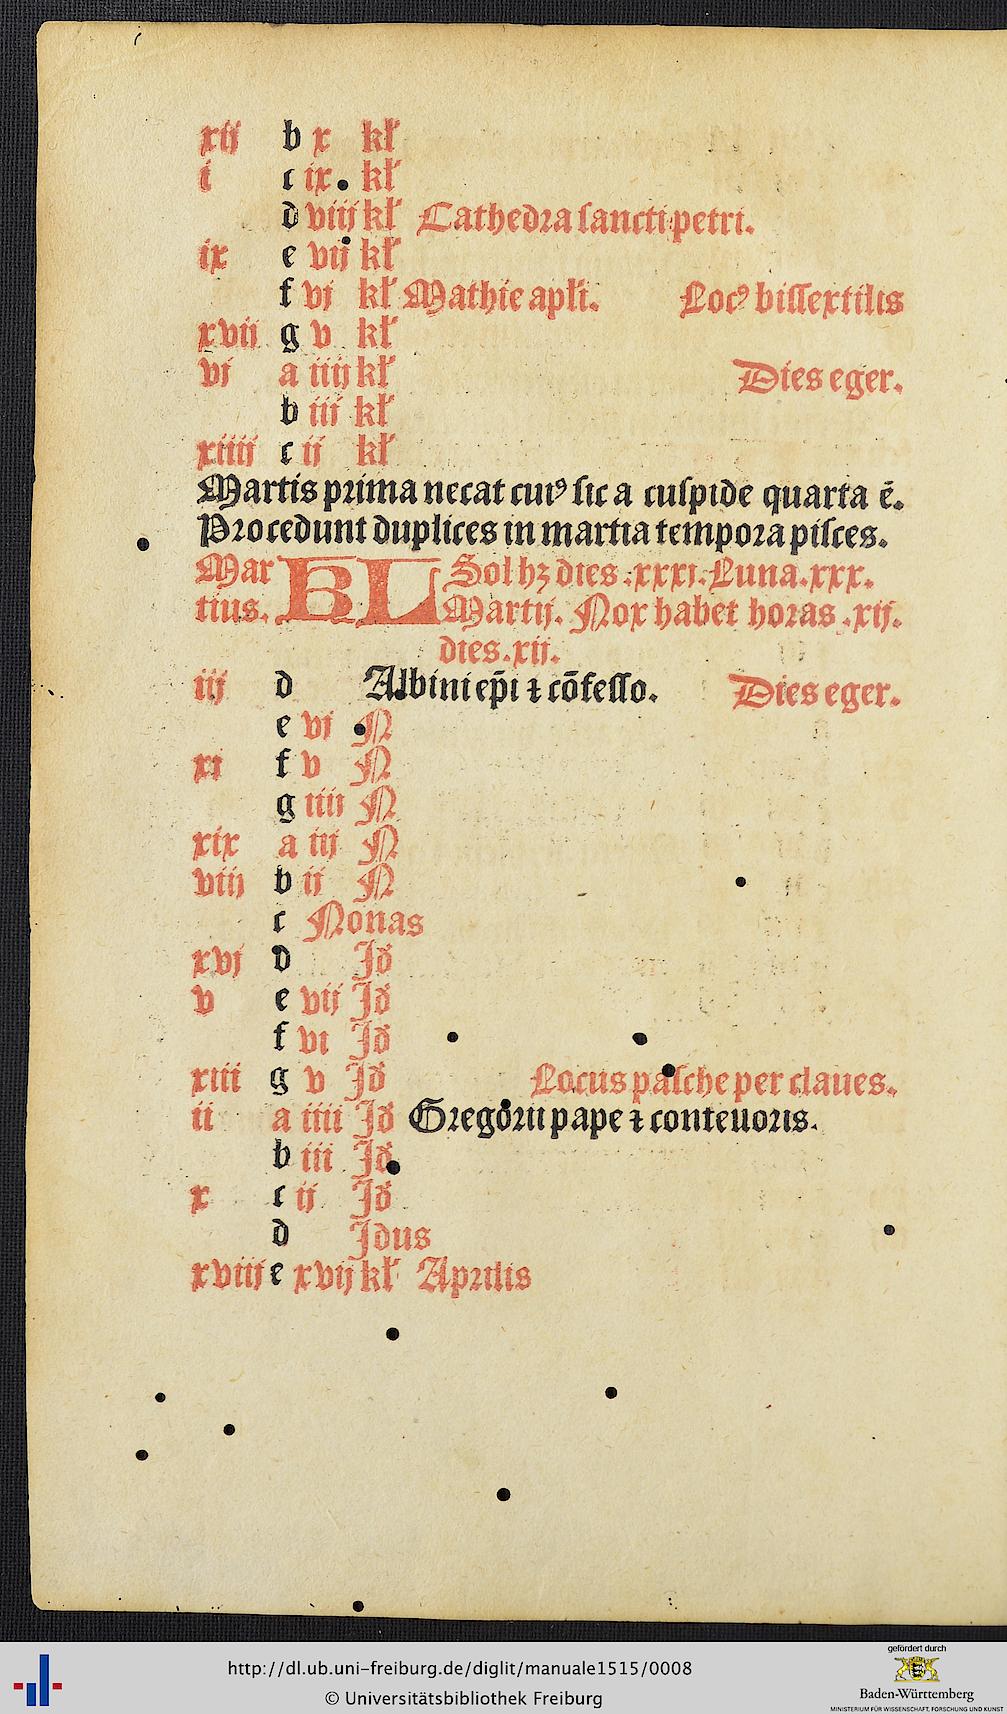 xij b x kł
i c ix. kł
d viij kł Cathedra sancti petri.
ix e vij kł
f vj kł Mathie apłi. Locꝰ bissextilis
xvij g v kł
vj a iiij kł Dies eger.
b iii kł
xiiij c ij kł
Martis prima necat cuiꝰ sic a cuspide quarta ē.
Procedunt duplices in martia tempora pisces.
Mar KL Sol hꝫ dies .xxxj. Luna .xxx.
tius. Martij. Nox habet horas .xij.
dies .xij.
iij d Albini ep̄i ⁊ cōfesso. Dies eger.
e vj N
xj f v N
g iiij N
xix a iij N
viij b ij N
c Nonas
xvj d Id
v e vij Id
f vi Id
xiii g v Id Locus pasche per claues.
ii a iiii Id Gregorii pape ⁊ confeuoris.
b iii Id
x c ij Id
d Idus
xviij e xvij kł Aprilis
http://dl.ub.uni-freiburg.de/diglit/manuale1515/0008
© Universitätsbibliothek Freiburg
gefördert durch
Baden-Württemberg
MINISTERIUM FÜR WISSENSCHAFT, FORSCHUNG UND KUNST